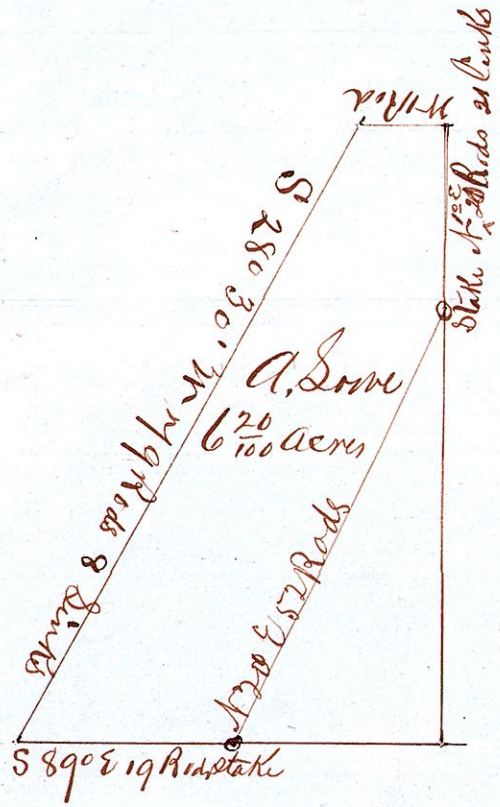 W 11 Rd
Stake N 1° E 20 Rods 21 Links
S 28° 30' W 79 Rods 8 Links
A. Lowe
6 20/100 acres
N 27° E 52 Rods
S 89° E 19 Rods Stake